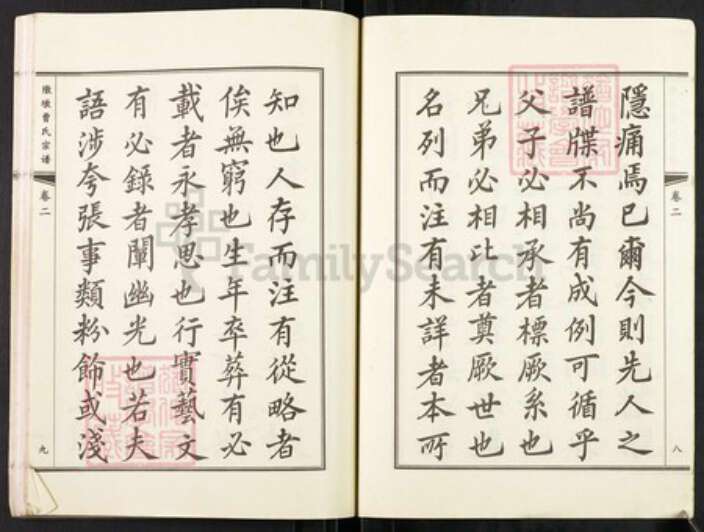 卷二
隱痛焉已爾今則先人之
譜牒不尚有成例可循乎
父子必相承者標厥系也
兄弟必相比者奠厥世也
名列而注有未詳者本所
八
知也人存而注有從略者
俟無窮也生年卒葬有必
載者永孝思也行實藝文
有必錄者闡幽光也若夫
語涉夸張事類粉飾或淺
曹氏宗谱
卷二
九
FamilySearch